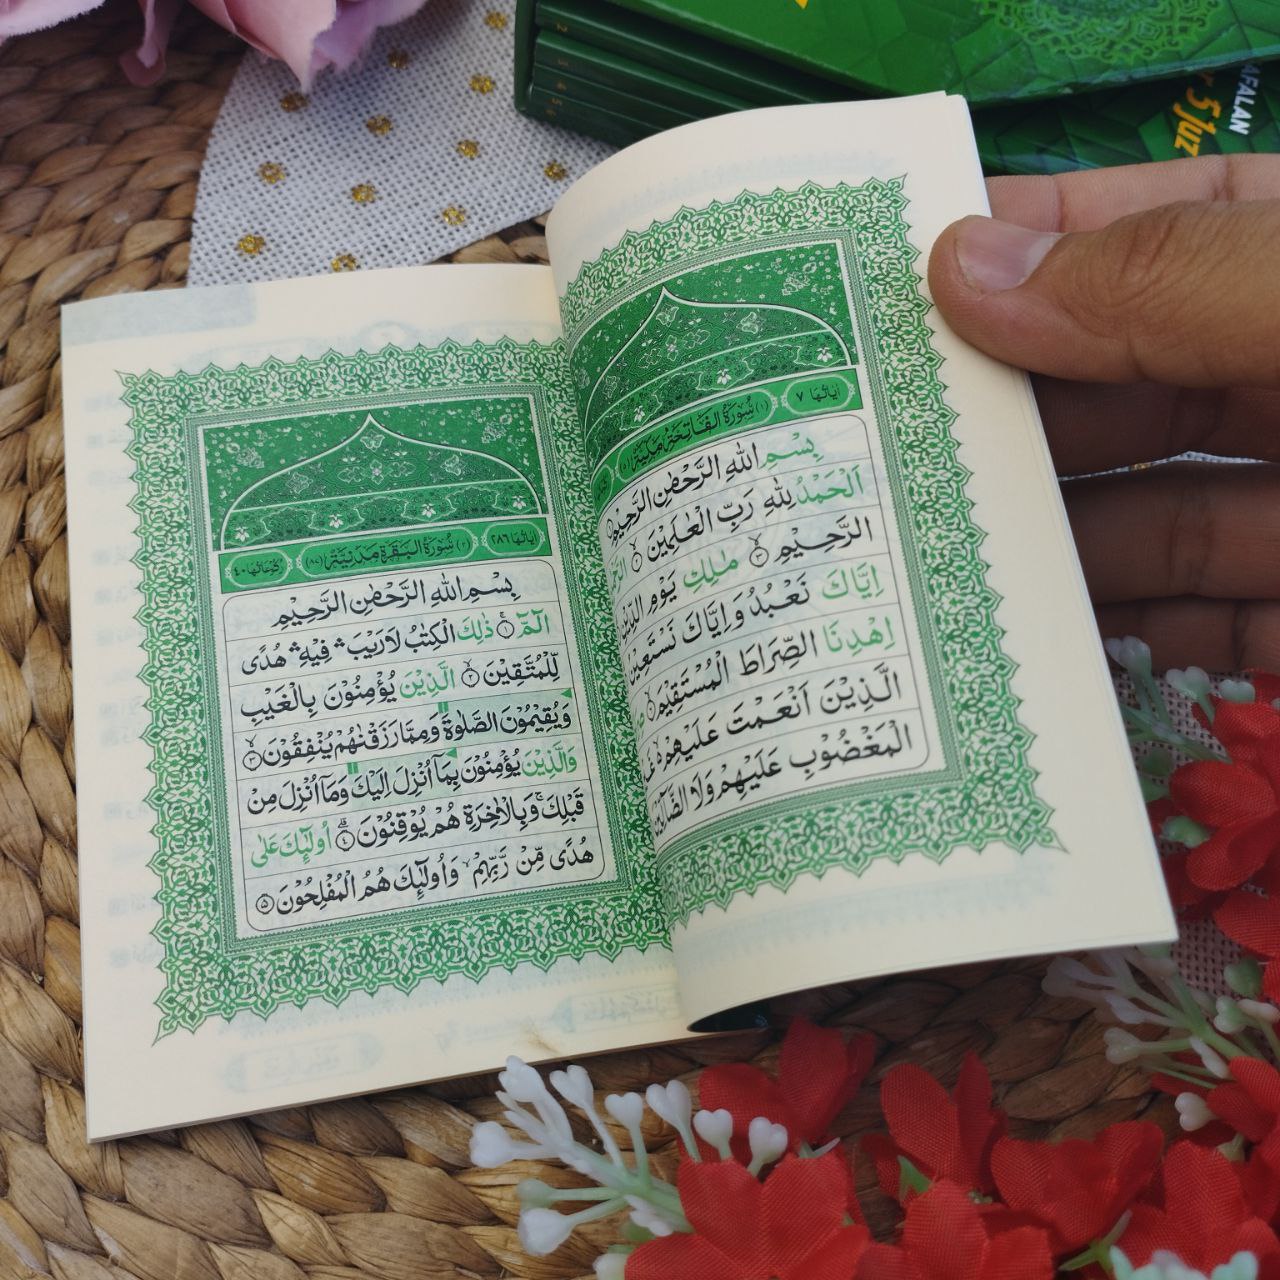 اٰيَاتُهَا ٧
(١) سُوْرَةُ الْفَاتِحَةِ مَكِّيَّةٌ (٥)
بِسْمِ اللهِ الرَّحْمٰنِ الرَّحِيْمِ ١
اَلْحَمْدُ لِلّٰهِ رَبِّ الْعٰلَمِيْنَ ٢
الرَّحِيْمِ ٣ مٰلِكِ يَوْمِ الدِّيْنِ
اِيَّاكَ نَعْبُدُ وَاِيَّاكَ نَسْتَعِيْنُ
اِهْدِنَا الصِّرَاطَ الْمُسْتَقِيْمَ ٦
الَّذِيْنَ اَنْعَمْتَ عَلَيْهِمْ
الْمَغْضُوْبِ عَلَيْهِمْ وَلَا الضَّآلِّيْنَ
اٰيَاتُهَا ٢٨٦
(٢) سُوْرَةُ الْبَقَرَةِ مَدَنِيَّةٌ (٨٧)
رُكُوْعَاتُهَا ٤٠
بِسْمِ اللهِ الرَّحْمٰنِ الرَّحِيْمِ
الٓمّٓ ١ ذٰلِكَ الْكِتٰبُ لَا رَيْبَ ۛ فِيْهِ ۛ هُدًى
لِّلْمُتَّقِيْنَ ٢ الَّذِيْنَ يُؤْمِنُوْنَ بِالْغَيْبِ
وَيُقِيْمُوْنَ الصَّلٰوةَ وَمِمَّا رَزَقْنٰهُمْ يُنْفِقُوْنَ ٣
وَالَّذِيْنَ يُؤْمِنُوْنَ بِمَآ اُنْزِلَ اِلَيْكَ وَمَآ اُنْزِلَ مِنْ
قَبْلِكَ ۚ وَبِالْاٰخِرَةِ هُمْ يُوْقِنُوْنَ ٤ اُولٰٓئِكَ عَلٰى
هُدًى مِّنْ رَّبِّهِمْ ۙ وَاُولٰٓئِكَ هُمُ الْمُفْلِحُوْنَ ٥
AFALAN
5 Juz
2
3
4
5
6